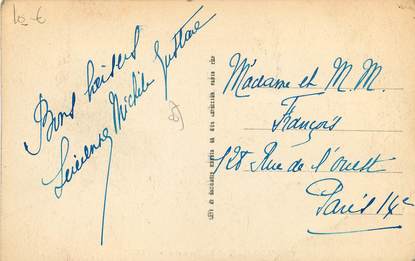 10 €
Bons baisers
Lucienne Michèle Gustave
Madame et M. M.
François
128 Rue de l'ouest
Paris 14e